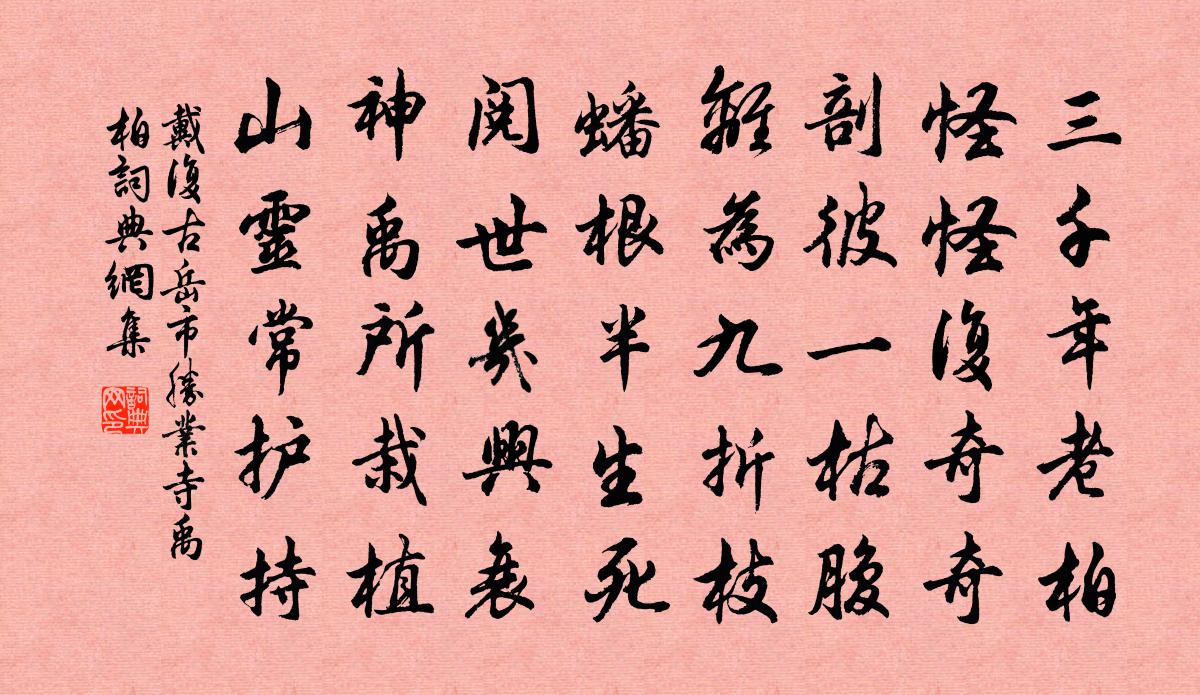 三千年老柏
怪怪復奇奇
剖彼一枯腹
離為九折枝
蟠根半生死
閱世幾興衰
神禹所栽植
山靈常护持
戴復古岳市勝業寺禹
柏詞典網集
詞典
网印